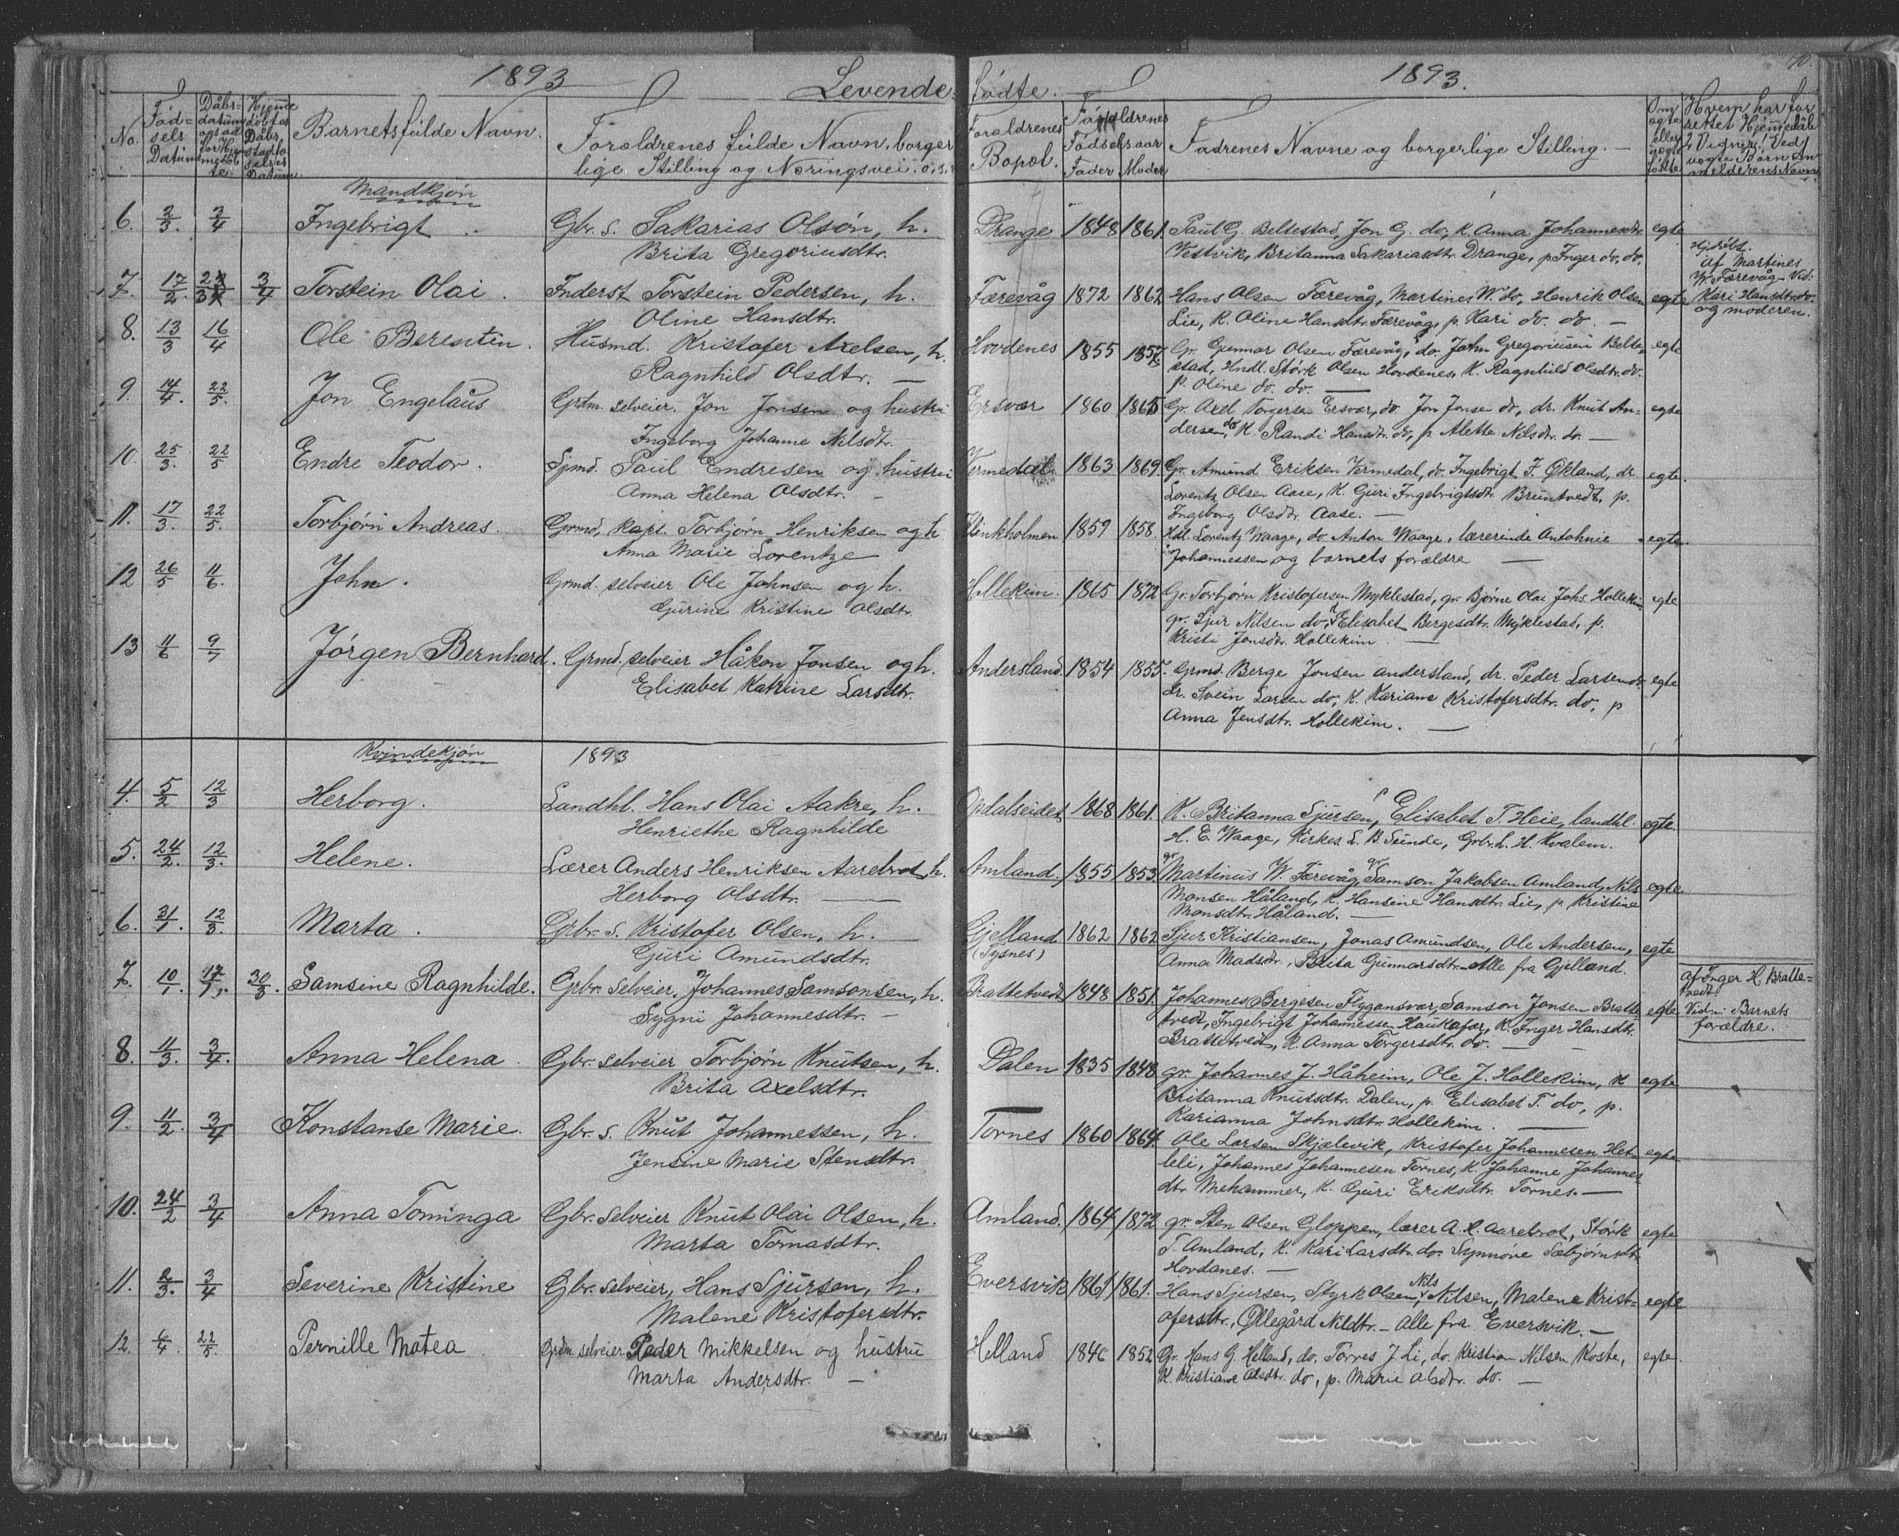 1893 Levende fødte. 1893. 70.
No. Fødsels Datum Dåbsdatum Hjemmedøbtes Dåbs Datum Barnets fulde Navn. Forældrenes fulde Navn, borgerlige Stilling og Næringsvei. Forældrenes Bopæl. Forældrenes Fødselsaar Fader Moder Fadrenes Navne og borgerlige Stilling. Om ægte eller uægte fødte Hvem har forrettet Hjemmedåb
Mandkjøn
6. 3/3. 3/4 Ingebrigt Gbr. s. Sakarias Olsøn, h. Drange 1848 1861. Paul G. Bellestad, Jon G. do, K. Anna Johannesdtr. egte
Brita Gregoriusdtr. Vestvik, Britanna Sakariasdtr. Drange, p Inger do. do.
Hj.døbt.
af Martines
W. Færevåg - Vid:
7. 17/2. 3/4 Torstein Olai. Inderst Torstein Pedersen, h. Færevåg 1872 1862 Hans Olsen Færevåg, Martines W. do, Henrik Olsen egte Kari Hansdtr. do.
Oline Hansdtr. Lie, K. Oline Hansdtr. Færevåg, p. Kari do. do. — og moderen.
8. 13/3 16/4 Ole Berentin. Husmd. Kristofer Axelsen, h. Hovdenes 1855 1857 Gr. Gunnar Olsen Færevåg, do. John Gregoriusen Belle- egte
Ragnhild Olsdtr. — stad, Hndl. Størk Olsen Hovdenes, K. Ragnhild Olsdtr. do.
p. Oline do. do. —
9. 14/4. 22/5. Jon Engelaus Grdm. selveier. Jon Jonsen og hustru Ersvær 1860 1865 Gr. Axel Torgersen Ersvær, do. Jon Jonsen do, dr. Knut An- egte
Ingeborg Johanne Nilsdtr. dersen do, K. Randi Hansdtr. do, p Alette Nilsdtr. do. —
10. 25/3. 22/5 Endre Teodor. Sjmd. Paul Endresen og hustru Vermedal 1863 1869. Gr. Amund Eriksen Vermedal, do. Ingebrigt J. Økland, dr. egte.
Anna Helena Olsdtr. — Lorentz Olsen Aase, K. Guri Ingebrigtsdtr Bruntvedt, p.
Ingeborg Olsdtr. Aase. —
11. 17/3. 22/5. Torbjørn Andreas. Grmd, kapt. Torbjørn Henriksen og h Flinkholmen 1859 1858. Hdl. Lorentz Waage, do. Anton Waage, lærerinde Antohnie egte.
Anna Marie Lorentze Johannessen og barnets forældre —
12 26/5 11/6. John. Grmd. selveier Ole Johnsen og h. Hollekim. 1865 1872 Gr. Torbjørn Kristofersen Myklestad, gr. Bjørne Olai Johs. Hollekim egte
Gurine Kristine Olsdtr gr. Sjur Nilsen do, K Elisabet Bergesdtr. Myklestad, p.
Kristi Jonsdtr. Hollekim. —
13 11/6 9/7 Jørgen Bernhard. Grmd. selveier Håkon Jonsen og h. Andersland. 1854 1855. Grmd. Berge Jonsen andersland, dr. Peder Larsen do. egte
Elisabet Katrine Larsdtr. dr. Svein Larsen do, K. Kariane Kristofersdtr. do, p
Anna Jensdtr. Hollekim. —
Kvindekjøn 1893
4. 5/2 12/3 Herborg. Landhl. Hans Olai Aakre, h. Opdalseidet 1868 1861. K. Britanna Sjursen, Elisabet T. Heie, landhl. egte
Henriethe Ragnhilde H. E. Waage, Kirkes. L. B. Sunde, Grbr. L. H. Kvalem.
5. 24/2. 12/3. Helene. Lærer Anders Henriksen Aarebrot, h. Amland. 1855 1853. gr Martinius W. Færevåg, gr Samson Jakobsen Amland, Nils egte
Herborg Olsdtr. — Monsen Håland, K. Hansine Hansdtr. Lie, p. Kristine
Monsdtr. Håland. —
6. 31/1. 12/3. Marta. Grbr. s. Kristofer Olsen, h. Gjelland 1862 1862 Sjur Kristiansen, Jonas Amundsen, Ole Andersen, egte
Guri Amundsdtr. (Tysnes) Anna Madsdtr, Brita Gunnarsdtr. - Alle fra Gjelland.
7. 10/1. 30/3. Samsine Ragnhilde. Gbr. selveier. Johannes Samsonsen, h. Brattetvedt 1848 1851. Johannes Bergesen Flygansvær, Samson Jonsen Bratte- egte af Inger H. Bratte-
Sygni Johannesdtr. — tvedt, Ingebrigt Johannessen Haukafær, K. Inger Hansdtr. tvedt
Brattetvedt, K. Anna Torgersdtr. do. — Vidn: Barnets
forældre.
8. 11/3. 3/4. Anna Helena. Gbr. selveier Torbjørn Knutsen, h. Dalen 1835 1848. gr. Johannes J. Håheim, Ole J. Hollekim, K egte
Brita Axelsdtr. Britanna Knutsdtr. Dalen, p. Elisabet T. do, p.
Karianna Johnsdtr. Hollekim. —
9. 11/2. 3/4 Konstanse Marie. Gbr. s. Knut Johannessen, h. Tornes 1860 1864. Ole Larsen Skjælevik, Kristofer Johannesen Het- egte
Jensine Marie Stensdtr. leli, Johannes Johannesen Tornes, K. Johanne Johannes
dtr. Mehammer, K. Guri Eriksdtr. Tornes. —
10. 24/2 3/4 Anna Tominga Gbr. selveier Knut Olai Olsen, h. Amland, 1864 1872. gr. Sten Olsen Gloppen, lærer A. H. Aarebrot, Størk egte
Marta Tomasdtr. T. Amland, K. Kari Larsdtr. do. Synnøve Sæbjørnsdtr.
Hovdanes. —
11. 2/3. 3/4 Severine Kristine Gbr. selveier, Hans Sjursen, h. Eversvik 1861 1861. Hans Sjursen, Styrk Olsen, Nils Nilsen, Malene Krist- egte
Malene Kristofersdtr. ofersdtr., Øllegård Nilsdtr. - Alle fra Eversvik. —
12. 6/4 22/5 Pernille Matea Grdm. selveier Peder Mikkelsen og hustru Helland 1846 1852. Gr. Hans G. Helland, do. Tørres J. Li, do. Kristian Nilsen Koste, egte
Marta Andersdtr. — K. Kristiane Olsdtr. do, p. Marie Olsdtr. do. —